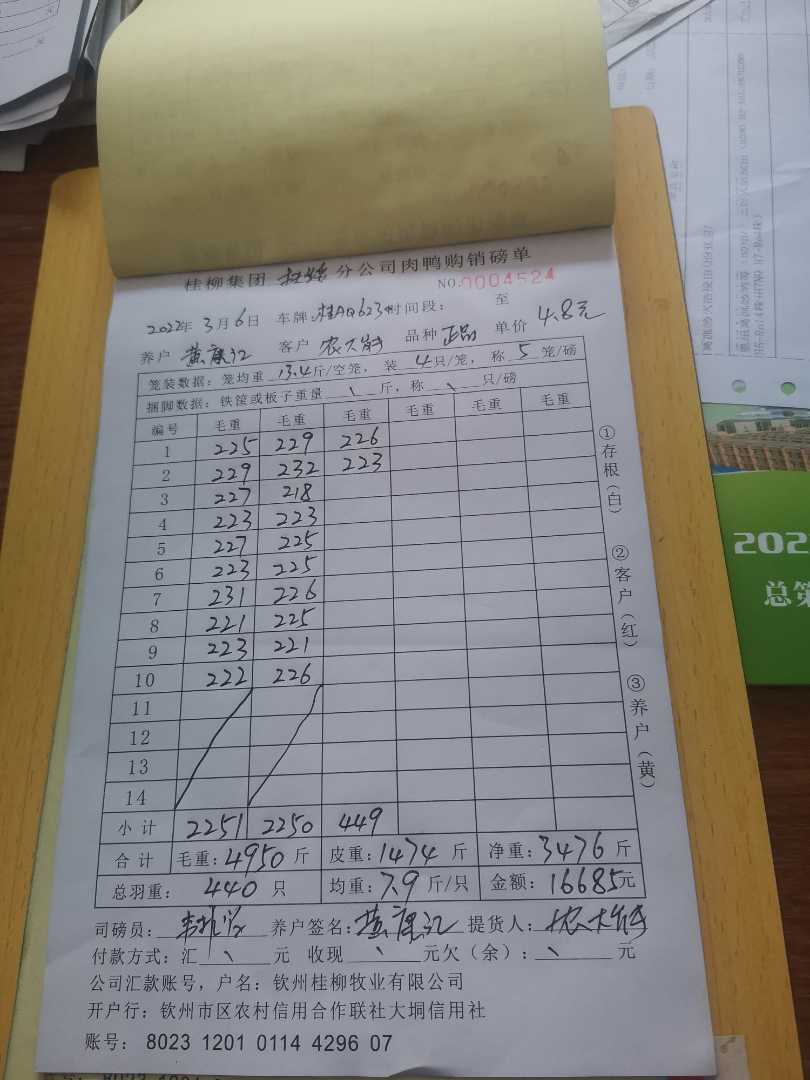 桂柳集团 分公司肉鸭购销磅单
NO.0004524
2022年 3月6日 车牌:桂AQ623 时间段: 至
养户 黄康江 客户 农大 品种 正品 单价 4.8元
笼装数据:笼均重 13.4斤/空笼, 装 4只/笼, 称 5 笼/磅
捆脚数据:铁筐或板子重量 \ 斤,称 \ 只/磅
编号 毛重 毛重 毛重 毛重 毛重 毛重
1 225 229 226
2 229 232 223
3 227 218
4 223 223
5 227 225
6 223 225
7 231 226
8 221 225
9 223 221
10 222 226
11
12
13
14
小计 2251 2250 449
合计 毛重:4950 斤 皮重:1474 斤 净重:3476 斤
总羽重: 440 只 均重:7.9 斤/只 金额:16685元
司磅员: 养户签名:黄康江 提货人:农大
付款方式:汇 \ 元 收现 \ 元欠(余): \ 元
公司汇款账号,户名:钦州桂柳牧业有限公司
开户行:钦州市区农村信用合作联社大垌信用社
账号: 8023 1201 0114 4296 07
①存根(白)
②客户(红)
③养户(黄)
202
总第